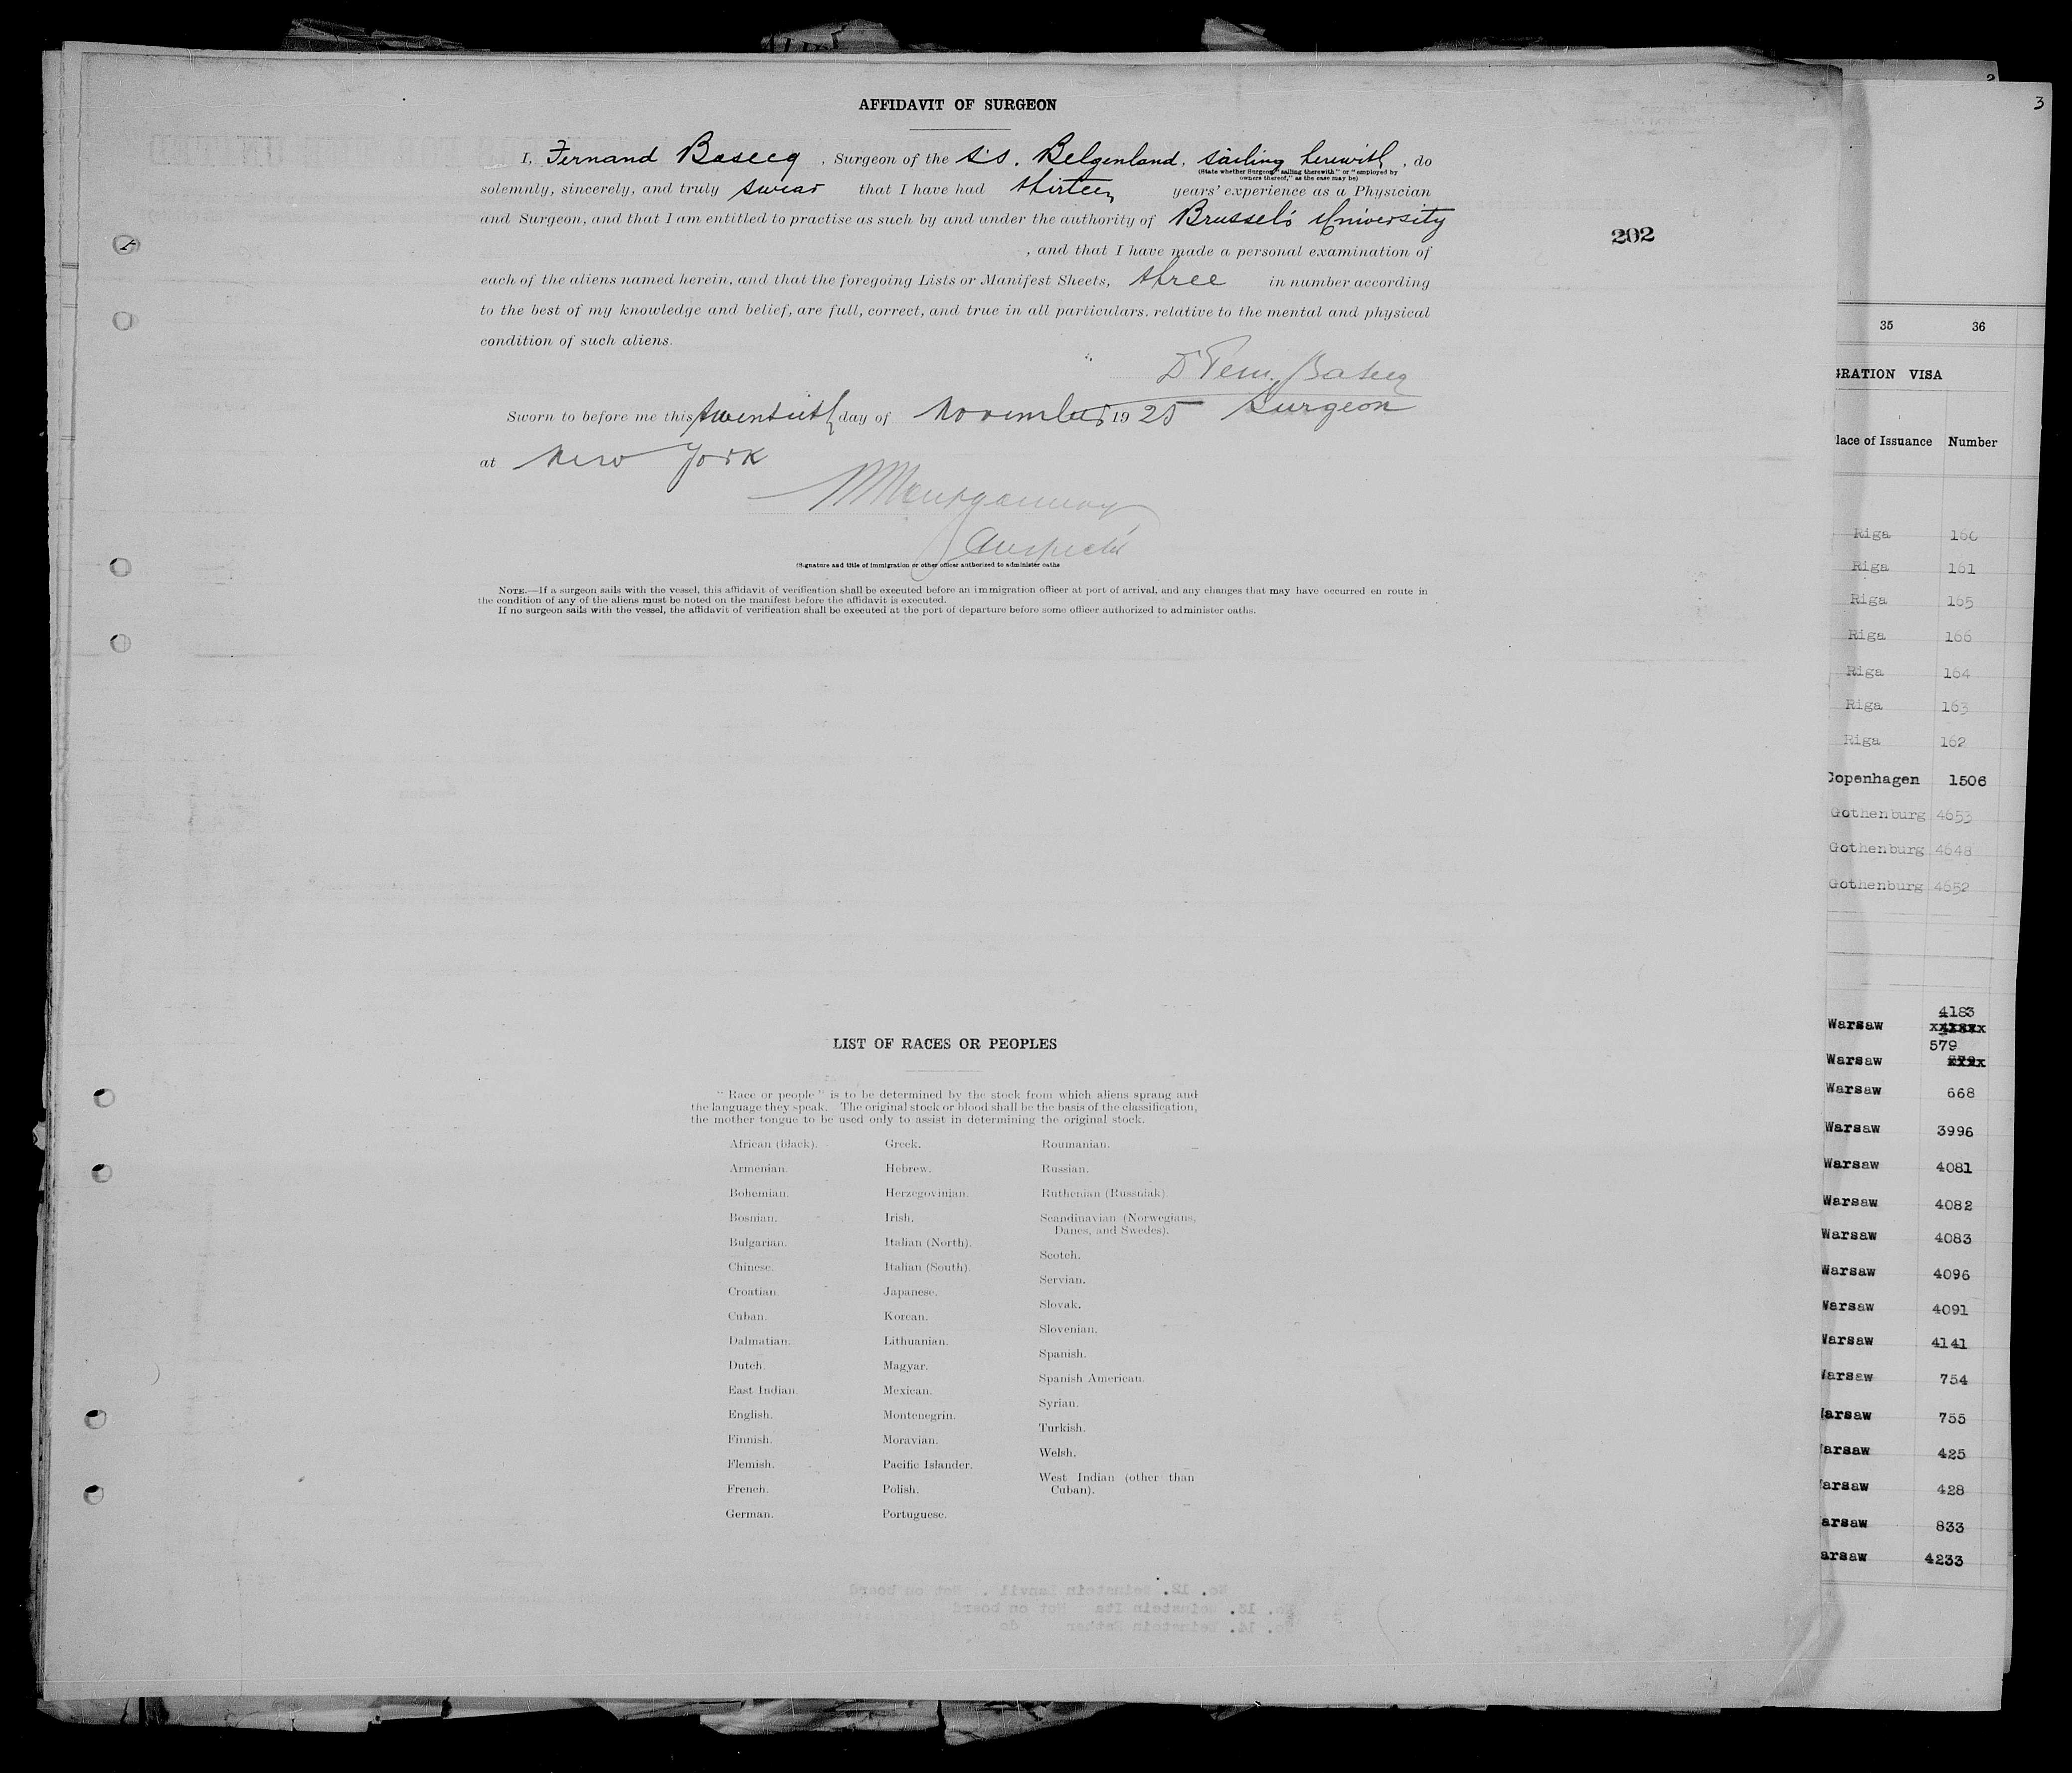 AFFIDAVIT OF SURGEON
I, Fernand Basecq, Surgeon of the S.S. Belgenland, sailing herewith, do
(State whether Surgeon "sailing therewith" or "employed by
owners thereof," as the case may be)
solemnly, sincerely, and truly swear that I have had thirteen years' experience as a Physician
and Surgeon, and that I am entitled to practise as such by and under the authority of Brussels University
, and that I have made a personal examination of
each of the aliens named herein, and that the foregoing Lists or Manifest Sheets, three in number according
to the best of my knowledge and belief, are full, correct, and true in all particulars. relative to the mental and physical
condition of such aliens.
Basecq
Sworn to before me this twentieth day of November 1925 Surgeon
at New York
Montgomery
(Signature and title of immigration or other officer authorized to administer oaths
NOTE.—If a surgeon sails with the vessel, this affidavit of verification shall be executed before an immigration officer at port of arrival, and any changes that may have occurred en route in
the condition of any of the aliens must be noted on the manifest before the affidavit is executed.
If no surgeon sails with the vessel, the affidavit of verification shall be executed at the port of departure before some officer authorized to administer oaths.
202
LIST OF RACES OR PEOPLES
"Race or people" is to be determined by the stock from which aliens sprang and
the language they speak. The original stock or blood shall be the basis of the classification,
the mother tongue to be used only to assist in determining the original stock.
African (black).
Armenian.
Bohemian.
Bosnian.
Bulgarian.
Chinese.
Croatian.
Cuban.
Dalmatian.
Dutch.
East Indian.
English.
Finnish.
Flemish.
French.
German.
Greek.
Hebrew.
Herzegovinian.
Irish.
Italian (North).
Italian (South).
Japanese.
Korean.
Lithuanian.
Magyar.
Mexican.
Montenegrin.
Moravian.
Pacific Islander.
Polish.
Portuguese.
Roumanian.
Russian.
Ruthenian (Russniak).
Scandinavian (Norwegians,
Danes, and Swedes).
Scotch.
Servian.
Slovak.
Slovenian.
Spanish.
Spanish American.
Syrian.
Turkish.
Welsh.
West Indian (other than
Cuban).
2
3
35 36
GRATION VISA
lace of Issuance Number
Riga 160
Riga 161
Riga 165
Riga 166
Riga 164
Riga 163
Riga 162
Copenhagen 1506
Gothenburg 4653
Gothenburg 4648
Gothenburg 4652
4183
Warsaw
579
Warsaw
Warsaw 668
Warsaw 3996
Warsaw 4081
Warsaw 4082
Warsaw 4083
Warsaw 4096
Warsaw 4091
Warsaw 4141
Warsaw 754
arsaw 755
arsaw 425
arsaw 428
arsaw 833
arsaw 4233